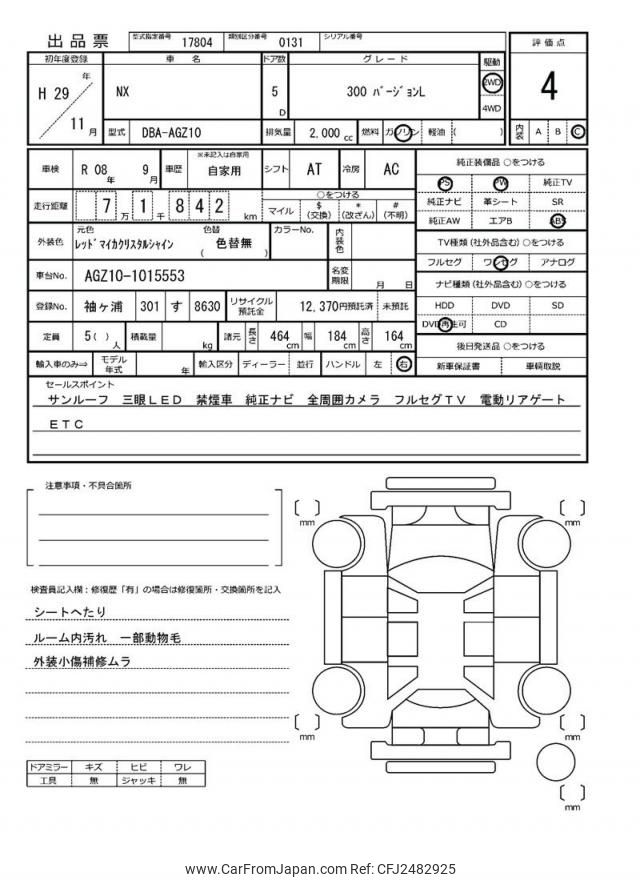 出品票 型式指定番号 17804 類別区分番号 0131 シリアル番号
評価点
4
内装 A B C
初年度登録 車名 ドア数 グレード 駆動
H 29 年 11 月
NX 5 D 300 バージョンL 2WD 4WD
型式 DBA-AGZ10 排気量 2,000 cc 燃料 ガソリン 軽油 ( )
車検 R 08 年 9 月 車歴 ※未記入は自家用 自家用 シフト AT 冷房 AC
走行距離 7 万 1 千 8 4 2 km
○をつける
マイル $ (交換) * (改ざん) # (不明)
外装色 元色 レッドマイカクリスタルシャイン 色替 ( 色替無 ) カラーNo. 内装色
車台No. AGZ10-1015553 名変期限 月 日
登録No. 袖ヶ浦 301 す 8630 リサイクル預託金 12,370円預託済 未預託
定員 5( ) 人 積載量 kg 諸元 長さ 464 cm 幅 184 cm 高さ 164 cm
輸入車のみ⇒ モデル年式 年 輸入区分 ディーラー 並行 ハンドル 左 右
純正装備品 ○をつける
PS PW 純正TV
純正ナビ 革シート SR
純正AW エアB ABS
TV種類 (社外品含む) ○をつける
フルセグ ワンセグ アナログ
ナビ種類 (社外品含む) ○をつける
HDD DVD SD
DVD再生可 CD
後日発送品 ○をつける
新車保証書 車輌取説
セールスポイント
サンルーフ 三眼LED 禁煙車 純正ナビ 全周囲カメラ フルセグTV 電動リアゲート
ETC
注意事項・不具合箇所
検査員記入欄：修復歴「有」の場合は修復箇所・交換箇所を記入
シートへたり
ルーム内汚れ 一部動物毛
外装小傷補修ムラ
ドアミラー キズ ヒビ ワレ
工具 無 ジャッキ 無
[ ] mm
[ ] mm
[ ] mm
[ ] mm
[ ] mm
www.CarFromJapan.com Ref: CFJ2482925